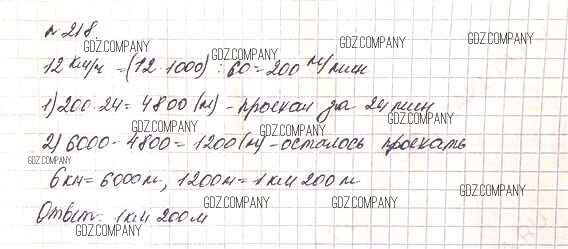 № 218.
GDZ.COMPANY GDZ.COMPANY GDZ.COMPANY GDZ.COMPANY
12 км/ч = (12·1000) : 60 = 200 м/мин
GDZ.COMPANY GDZ.COMPANY
1) 200·24 = 4800 (м) - проехал за 24 мин
GDZ.COMPANY GDZ.COMPANY GDZ.COMPANY
2) 6000 - 4800 = 1200 (м) - осталось проехать
GDZ.COMPANY
6 км = 6000 м, 1200 м = 1 км 200 м
GDZ.COMPANY GDZ.COMPANY GDZ.COMPANY
Ответ: 1 км 200 м
GDZ.COMPANY